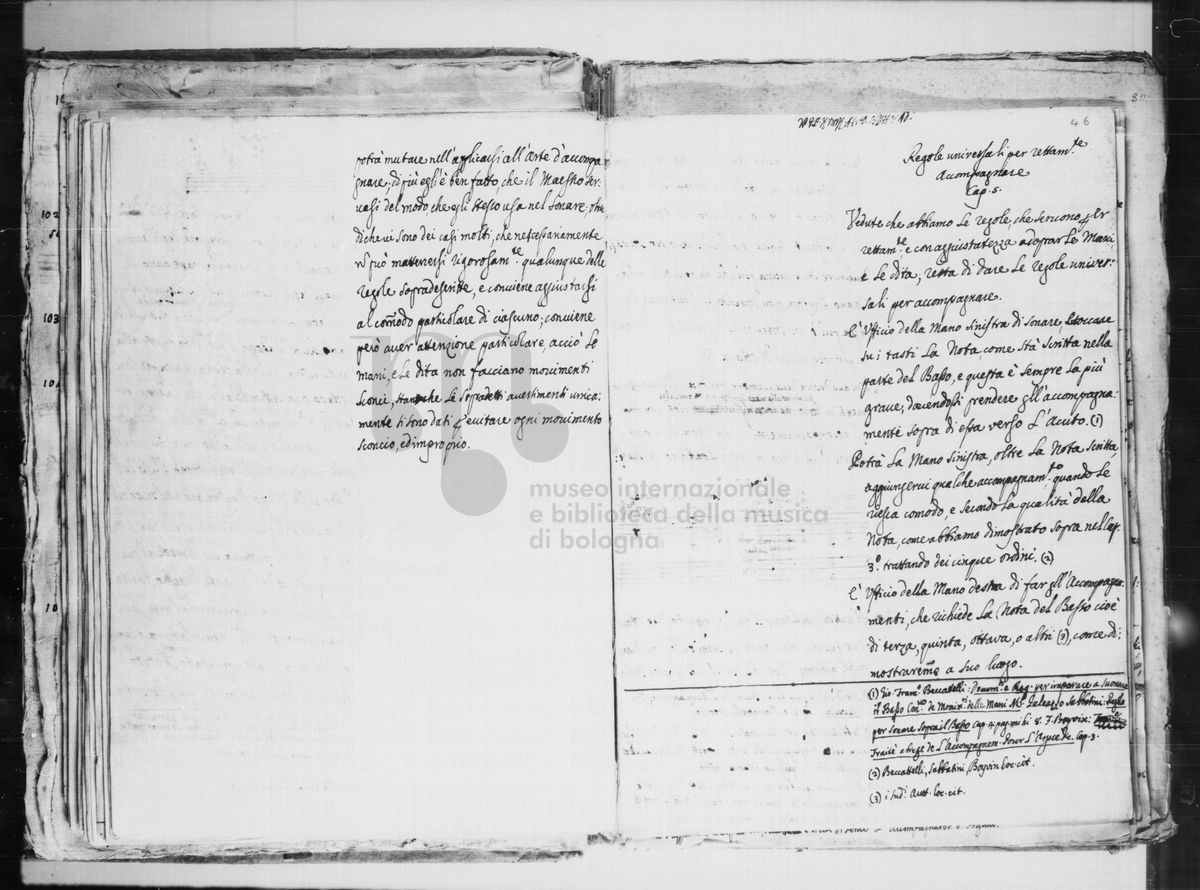 potrà mutare nell'applicarsi all'arte d'accompa
gnare; di più egli è ben fatto, che il Maestro ser:
vasi del modo, che egli stesso usa nel sonare,
di che vi sono dei casi molti, che necessariamente
può mattenersi rigorosam.te qualunque delle
regole sopradescritte, e conviene aggiustarsi
al com̃odo particolare di ciascuno; conviene
però aver attenzione particolare, acciò le
mani, e le dita non facciano movimenti
sconci, che le sopradetti avertimenti unica:
mente si sono dati evitare ogni movimento
sconcio, ed improprio.
80
46
Regole universali per rettam.te
Acompagnare
Cap. 5.
Vedute che abbiamo le regole, che servono per
rettam.te e con aggiustatezza adoprar le Mani,
e le dita; resta di dare le regole univer:
sali per accompagnare.
E' Ufficio della Mano sinistra di sonare, toccare
su i tasti la Nota come stà scritta nella
parte del Basso, e questa è sempre la più
grave, dovendosi prendere gll'accompagna:
menti sopra di essa verso l'Acuto. (1)
Potrà la Mano sinistra, oltre la Nota scritta,
aggiungervi qualche accompagnam.to quando le
riesca comodo, e secondo la qualità della
Nota, come abbiamo dimostrato sopra nel Cap.
3.o trattando dei cinque ordini. (2)
E' Ufficio della Mano destra di far gll'Accompagna:
menti, che richiede la Nota del Basso cioè
di terza, quinta, ottava, o altri (3), come di:
mostraremo a suo luogo.
(1) Gio. Fran.co Beccattelli: e Reg. per imparare a suonare
il Basso Con.uo de Movim.ti delle Mani Galeazzo Sabbatini: Regola
per sonare sopra il Basso Cap. 4. J. Boyvin:
Traité abregé de l'Accompagnem. pour l'Orgue &c. Cap. 3.
(2) Beccattelli, Sabbatini, Boyvin loc. cit.
(3) i sud.i Autt. loc. cit.
102
103
10
museo internazionale
e biblioteca della musica
di bologna